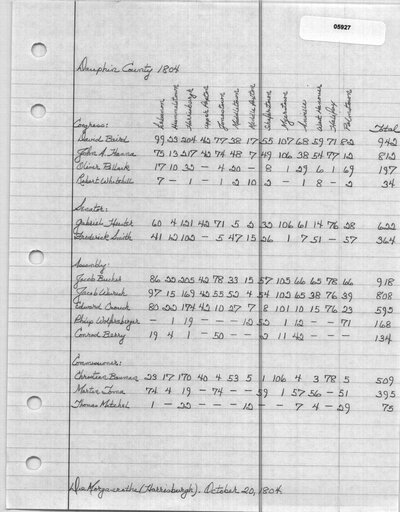 05927
Dauphin County 1804
Lebanon Hummelstown Harrisburgh Upper Paxton Jonestown Middletown Middle Paxton Shaferstown Myerstown Annville West Hanover Halifax Palmstown
Congress: Total
David Baird 99 23 204 42 77 38 17 55 107 68 59 71 82 942
John A. Hanna 75 13 217 42 74 48 7 49 106 38 54 77 12 812
Oliver Pollock 17 10 32 – 4 20 – 8 1 29 6 1 69 197
Robert Whitehill 7 – 1 – 1 2 10 2 – 1 8 – 2 34
Senator:
Gabriel Hiester 60 4 121 42 71 5 2 32 106 61 14 76 28 622
Frederick Smith 41 12 102 – 5 47 15 26 1 7 51 – 57 364
Assembly:
Jacob Bucher 86 22 205 42 78 33 15 57 105 66 65 78 66 918
Jacob 97 15 169 42 55 52 4 54 102 65 38 76 39 808
Edward Crouch 80 22 174 42 10 27 7 8 101 10 15 76 23 595
Philip Wolfersberger – 1 19 – – 12 52 1 12 – – 71 168
Conrad Barry 19 4 1 – 50 – – 2 11 42 – – – 134
Commissioner:
Christian Bauman 23 17 170 40 4 53 5 1 106 4 3 78 5 509
Martin 74 4 19 – 74 – – 59 1 57 56 – 51 395
Thomas Mitchel 1 – 22 – – – 12 – – 7 4 – 29 75
Die Morgenrothe (Harrisburgh). October 20, 1804